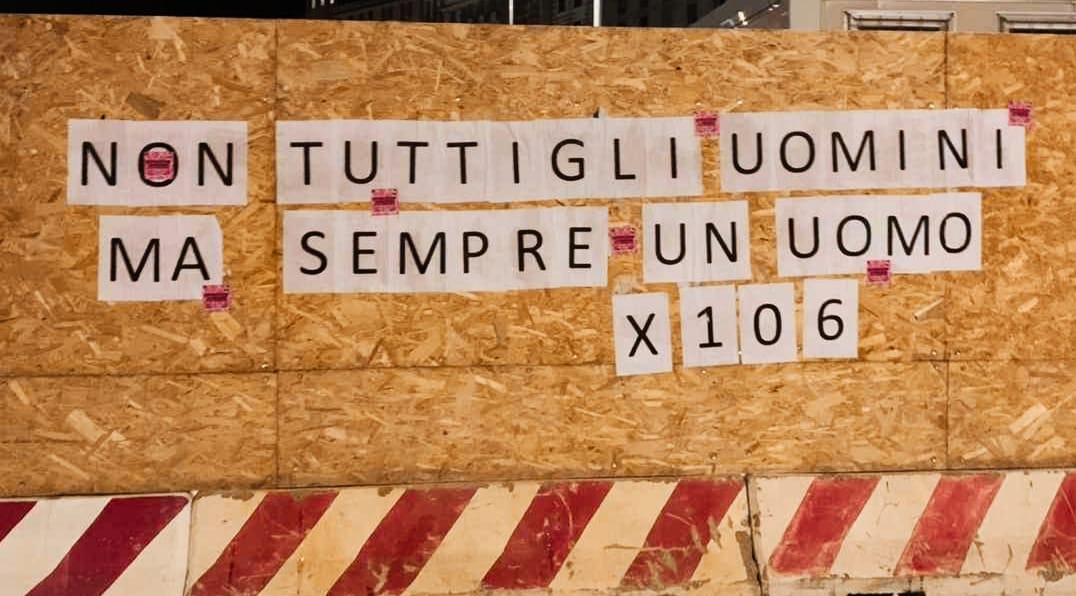 NON TUTTI GLI UOMINI
MA SEMPRE UN UOMO
X 106